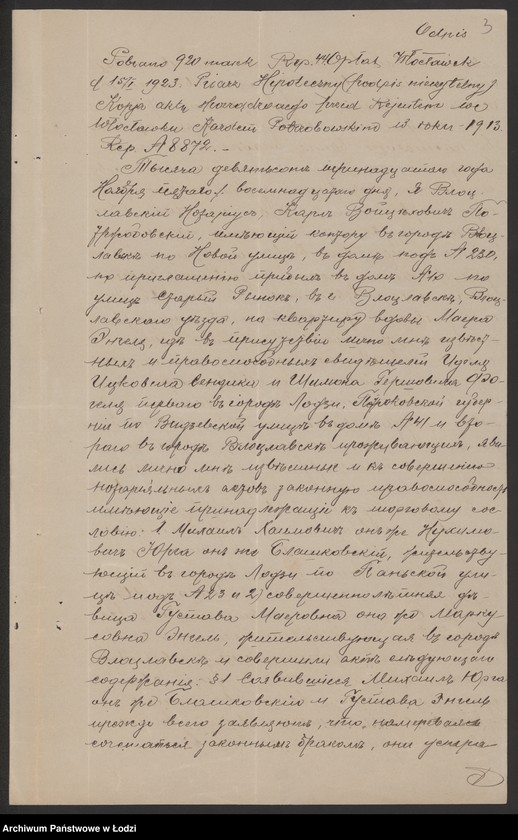 Odpis 3
Pobrano 920 marek Rep. 44 Włocławek
d 15/I 1923. Pisarz Hipoteczny (podpis nieczytelny)
Kopja aktu przed Rejentem we
Włocławku Karolem w roku 1913.
Rep. № 8872. –
Тысяча девятьсотъ тринадцатаго года
Ноября восемнадцатаго дня, я Влоц-
лавскій Нотаріусъ, Карлъ Войцѣховичъ По-
имѣющій контору въ городѣ Влоц-
лавскѣ по Новой улицѣ, въ домѣ подъ № 230,
по приглашенію прибылъ въ домъ № по
улицѣ Старый Рынокъ, въ г. Влоцлавскѣ, Влоц-
лавскаго уѣзда, на квартиру вдовы
Энгель, гдѣ въ присутствіи лично мнѣ извѣст-
ныхъ и правоспособныхъ свидѣтелей
Ицковича и Шимона Гершовича
перваго въ городѣ Лодзи, Петроковской губер-
ніи по Видзевской улицѣ въ домѣ № 41 и вто-
раго въ городѣ Влоцлавскѣ проживающихъ, яви-
лись лично мнѣ извѣстные и къ совершенію
нотаріальныхъ актовъ законную правоспособность
имѣющіе принадлежащіе къ торговому сос-
ловію: 1 Михаилъ Хаимовичъ онъ же
вичъ Юрга онъ же Блашковскій, жительству-
ющій въ городѣ Лодзи по Паньской ули-
цѣ подъ № 23 и 2) совершеннолѣтняя дѣ-
вица Густава Маеровна она же Марку-
совна Энгель, жительствующая въ городѣ
Влоцлавскѣ и совершили актъ слѣдующаго
содержанія: § 1 Михаилъ Юрга
онъ же Блашковскій и Густава Энгель
прежде всего заявляютъ, что намѣреваясь
сочетаться законнымъ бракомъ, они
Archiwum Państwowe w Łodzi